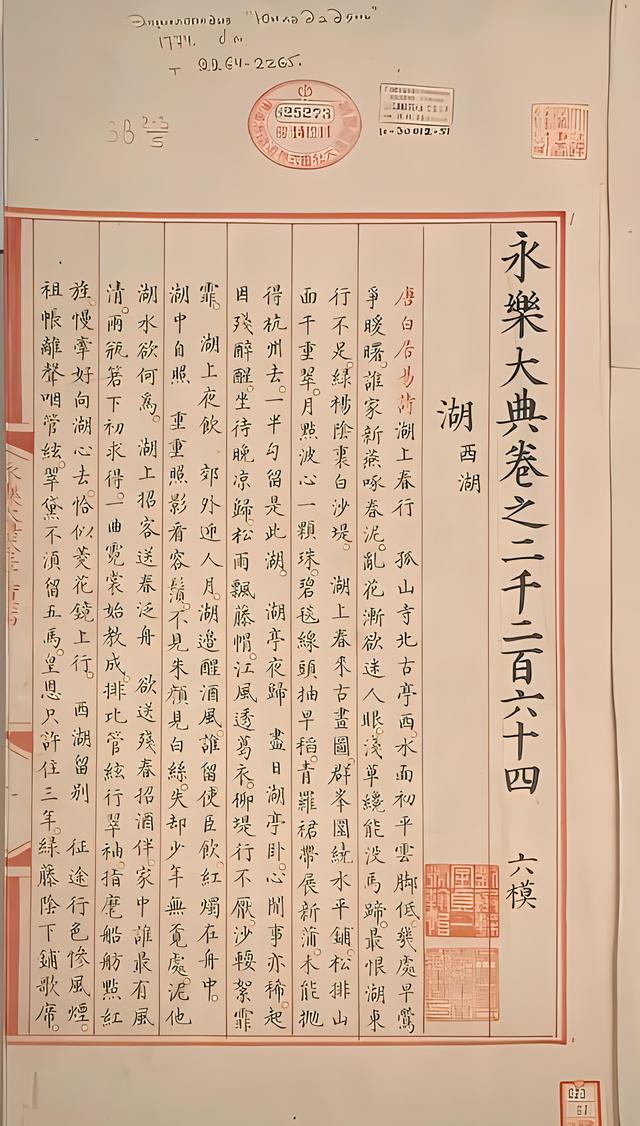 Энциклопедия "Юн ло да дянь"
2264-2265.
3В 2-3/5
625273
永樂大典卷之二千二百六十四 六模
湖 西湖
唐白居易詩湖上春行 孤山寺北古亭西。水面初平雲脚低。幾處早鶯
爭暖曙。誰家新燕啄春泥。亂花漸欲迷人眼。淺草纔能没馬蹄。最恨湖東
行不足。緑楊陰裏白沙堤。 湖上春來古畫圖。群峯圍繞水平鋪。松排山
面千重翠。月點波心一顆珠。碧毯線頭抽早稻。青羅裙帶展新蒲。未能抛
得杭州去。一半勾留是此湖。 湖亭夜歸 盡日湖亭卧。心閒事亦稀。起
因殘醉醒。坐待晚凉歸。松雨飄藤帽。江風透葛衣。柳堤行不厭。沙輭絮霏
霏。 湖上夜飲 郊外迎人月。湖邊醒酒風。誰留使臣飲。紅燭在舟中。
湖中自照 重重照影看容鬢。不見朱顔見白絲。失却少年無覓處。泥他
湖水欲何爲。 湖上招客送春泛舟 欲送殘春招酒伴。家中誰最有風
清。兩瓶箬下初求得。一曲霓裳始教成。排比管絃行翠袖。指麾船舫點紅
旌。慢牽好向湖心去。恰似菱花鏡上行。 西湖留别 征途行色慘風煙。
祖帳離聲咽管絃。翠黛不須留五馬。皇恩只許住三年。緑藤陰下鋪歌席。